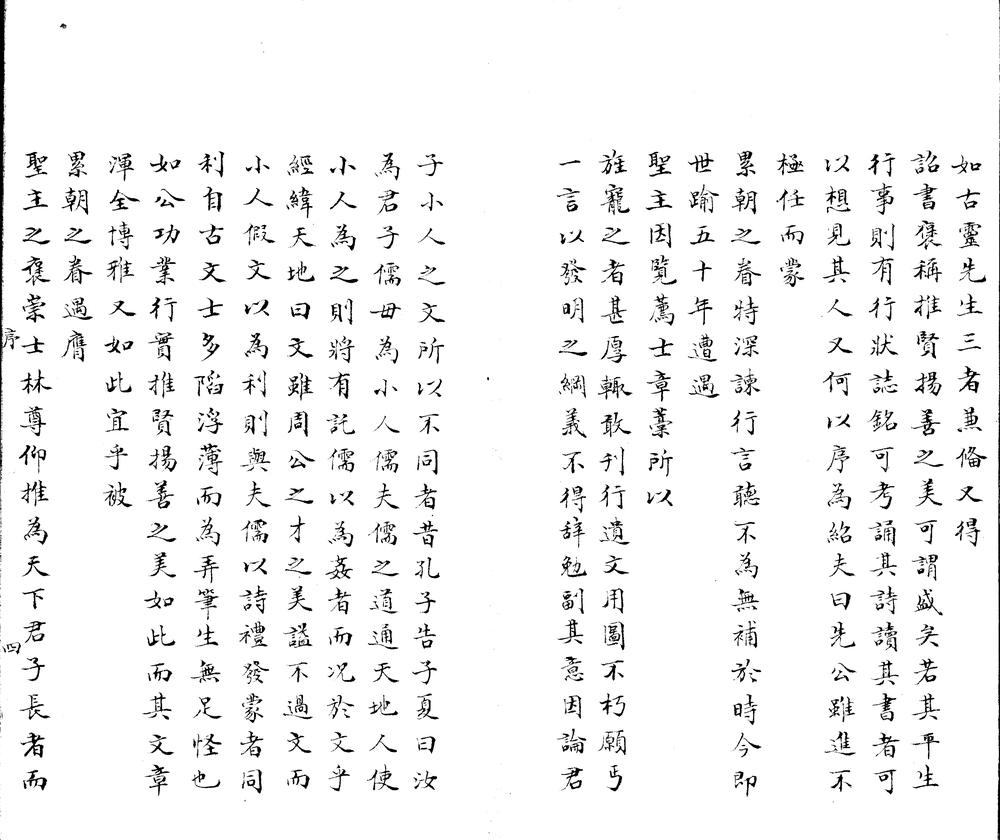 如古靈先生三者兼俻又得
詔書褒稱推賢揚善之美可謂盛矣若其平生
行事則有行狀誌銘可考誦其詩讀其書者可
以想見其人又何以序為紹夫曰先公雖進不
極任而蒙
累朝之眷特深諫行言聽不為無補於時今即
世踰五十年遭遇
聖主因覽薦士章藁所以
旌寵之者甚厚輒敢刊行遺文用圖不朽願丐
一言以發明之綱義不得辞勉副其意因論君
子小人之文所以不同者昔孔子告子夏曰汝
為君子儒毋為小人儒夫儒之道通天地人使
小人為之則將有託儒以為姦者而况於文乎
經緯天地曰文雖周公之才之美謚不過文而
小人假文以為利則與夫儒以詩禮發蒙者同
利自古文士多䧟浮薄而為弄筆生無足怪也
如公功業行實推賢揚善之美如此而其文章
渾全博雅又如此宜乎被
累朝之眷遇膺
聖主之褒崇士林尊仰推為天下君子長者而
序
四